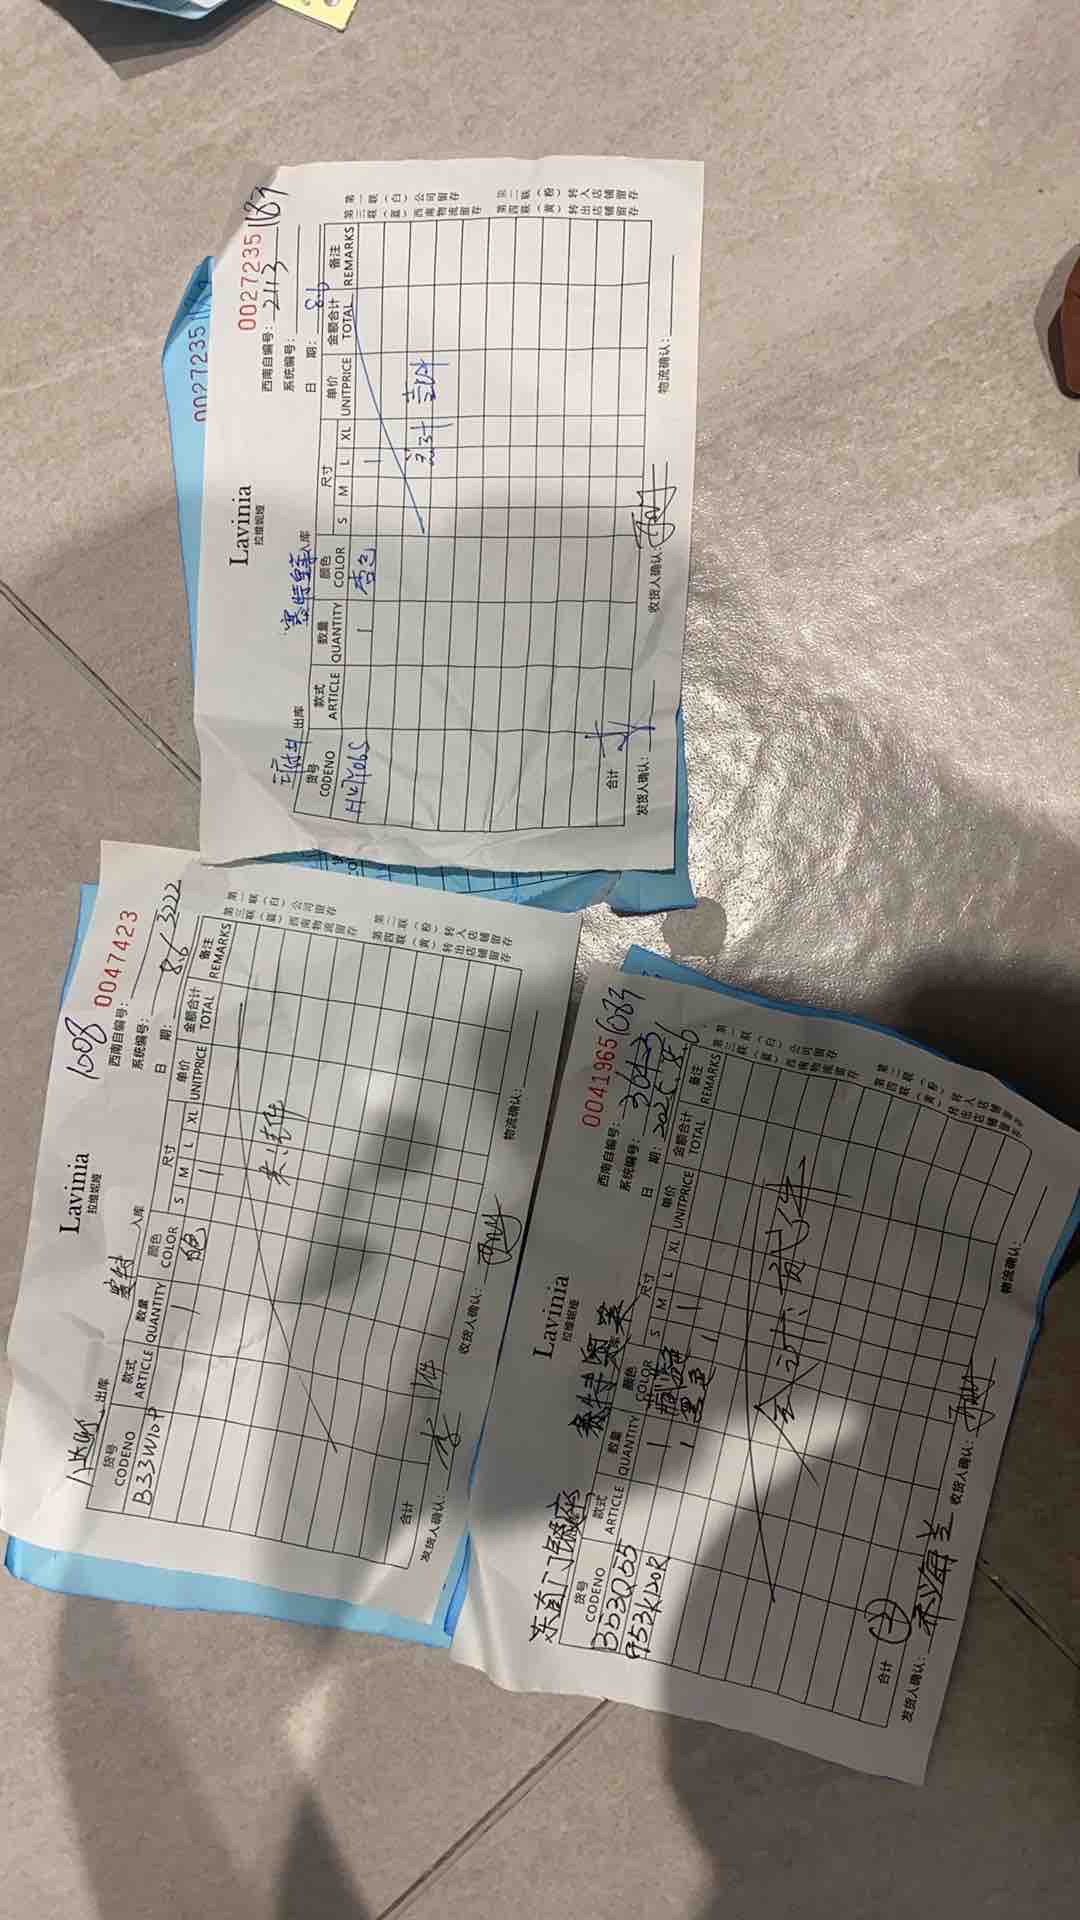 0027235 1083
Lavinia
拉维妮娅
西南自编号: 2113
系统编号:
日 期: 8.6
出库 入库
货号 款式 数量 颜色 尺寸 单价 金额合计 备注
CODENO ARTICLE QUANTITY COLOR S M L XL UNITPRICE TOTAL REMARKS
1 杏色 1
共计壹件
合计
发货人确认: 收货人确认: 物流确认:
第一联(白)公司留存
第二联(粉)转入店铺留存
第三联(蓝)西南物流留存
第四联(黄)转出店铺留存
0027235
1008 0047423
Lavinia
拉维妮娅
西南自编号:
系统编号: 3222
日 期: 8.6
出库 入库
货号 款式 数量 颜色 尺寸 单价 金额合计 备注
CODENO ARTICLE QUANTITY COLOR S M L XL UNITPRICE TOTAL REMARKS
B33W10P 1 1
共1件
合计 1件
发货人确认: 李 收货人确认: 物流确认:
第一联(白)公司留存
第二联(粉)转入店铺留存
第三联(蓝)西南物流留存
第四联(黄)转出店铺留存
0041965 1083
Lavinia
拉维妮娅
西南自编号: 3643
系统编号:
日 期: 2025.8.6
东直门银座 赛特奥莱
货号 款式 数量 颜色 尺寸 单价 金额合计 备注
CODENO ARTICLE QUANTITY COLOR S M L XL UNITPRICE TOTAL REMARKS
B53Q55 1 藏蓝 1
953K20R 1 墨色 1
合计: 贰件
合计 ②
发货人确认: 乔海兰 收货人确认: 物流确认:
第一联(白)公司留存
第二联(粉)转入店铺留存
第三联(蓝)西南物流留存
第四联(黄)转出店铺留存